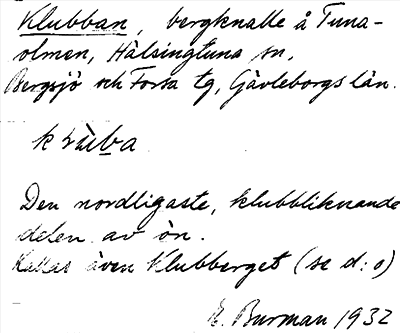 Klubban, bergknalle å Tuna-
olmen, Hälsingtuna sn,
Bergsjö och Forsa tg, Gävleborgs län.
Den nordligaste, klubbliknande
delen av ön.
Kallas även Klubberget (se d:o)
E. Burman 1932